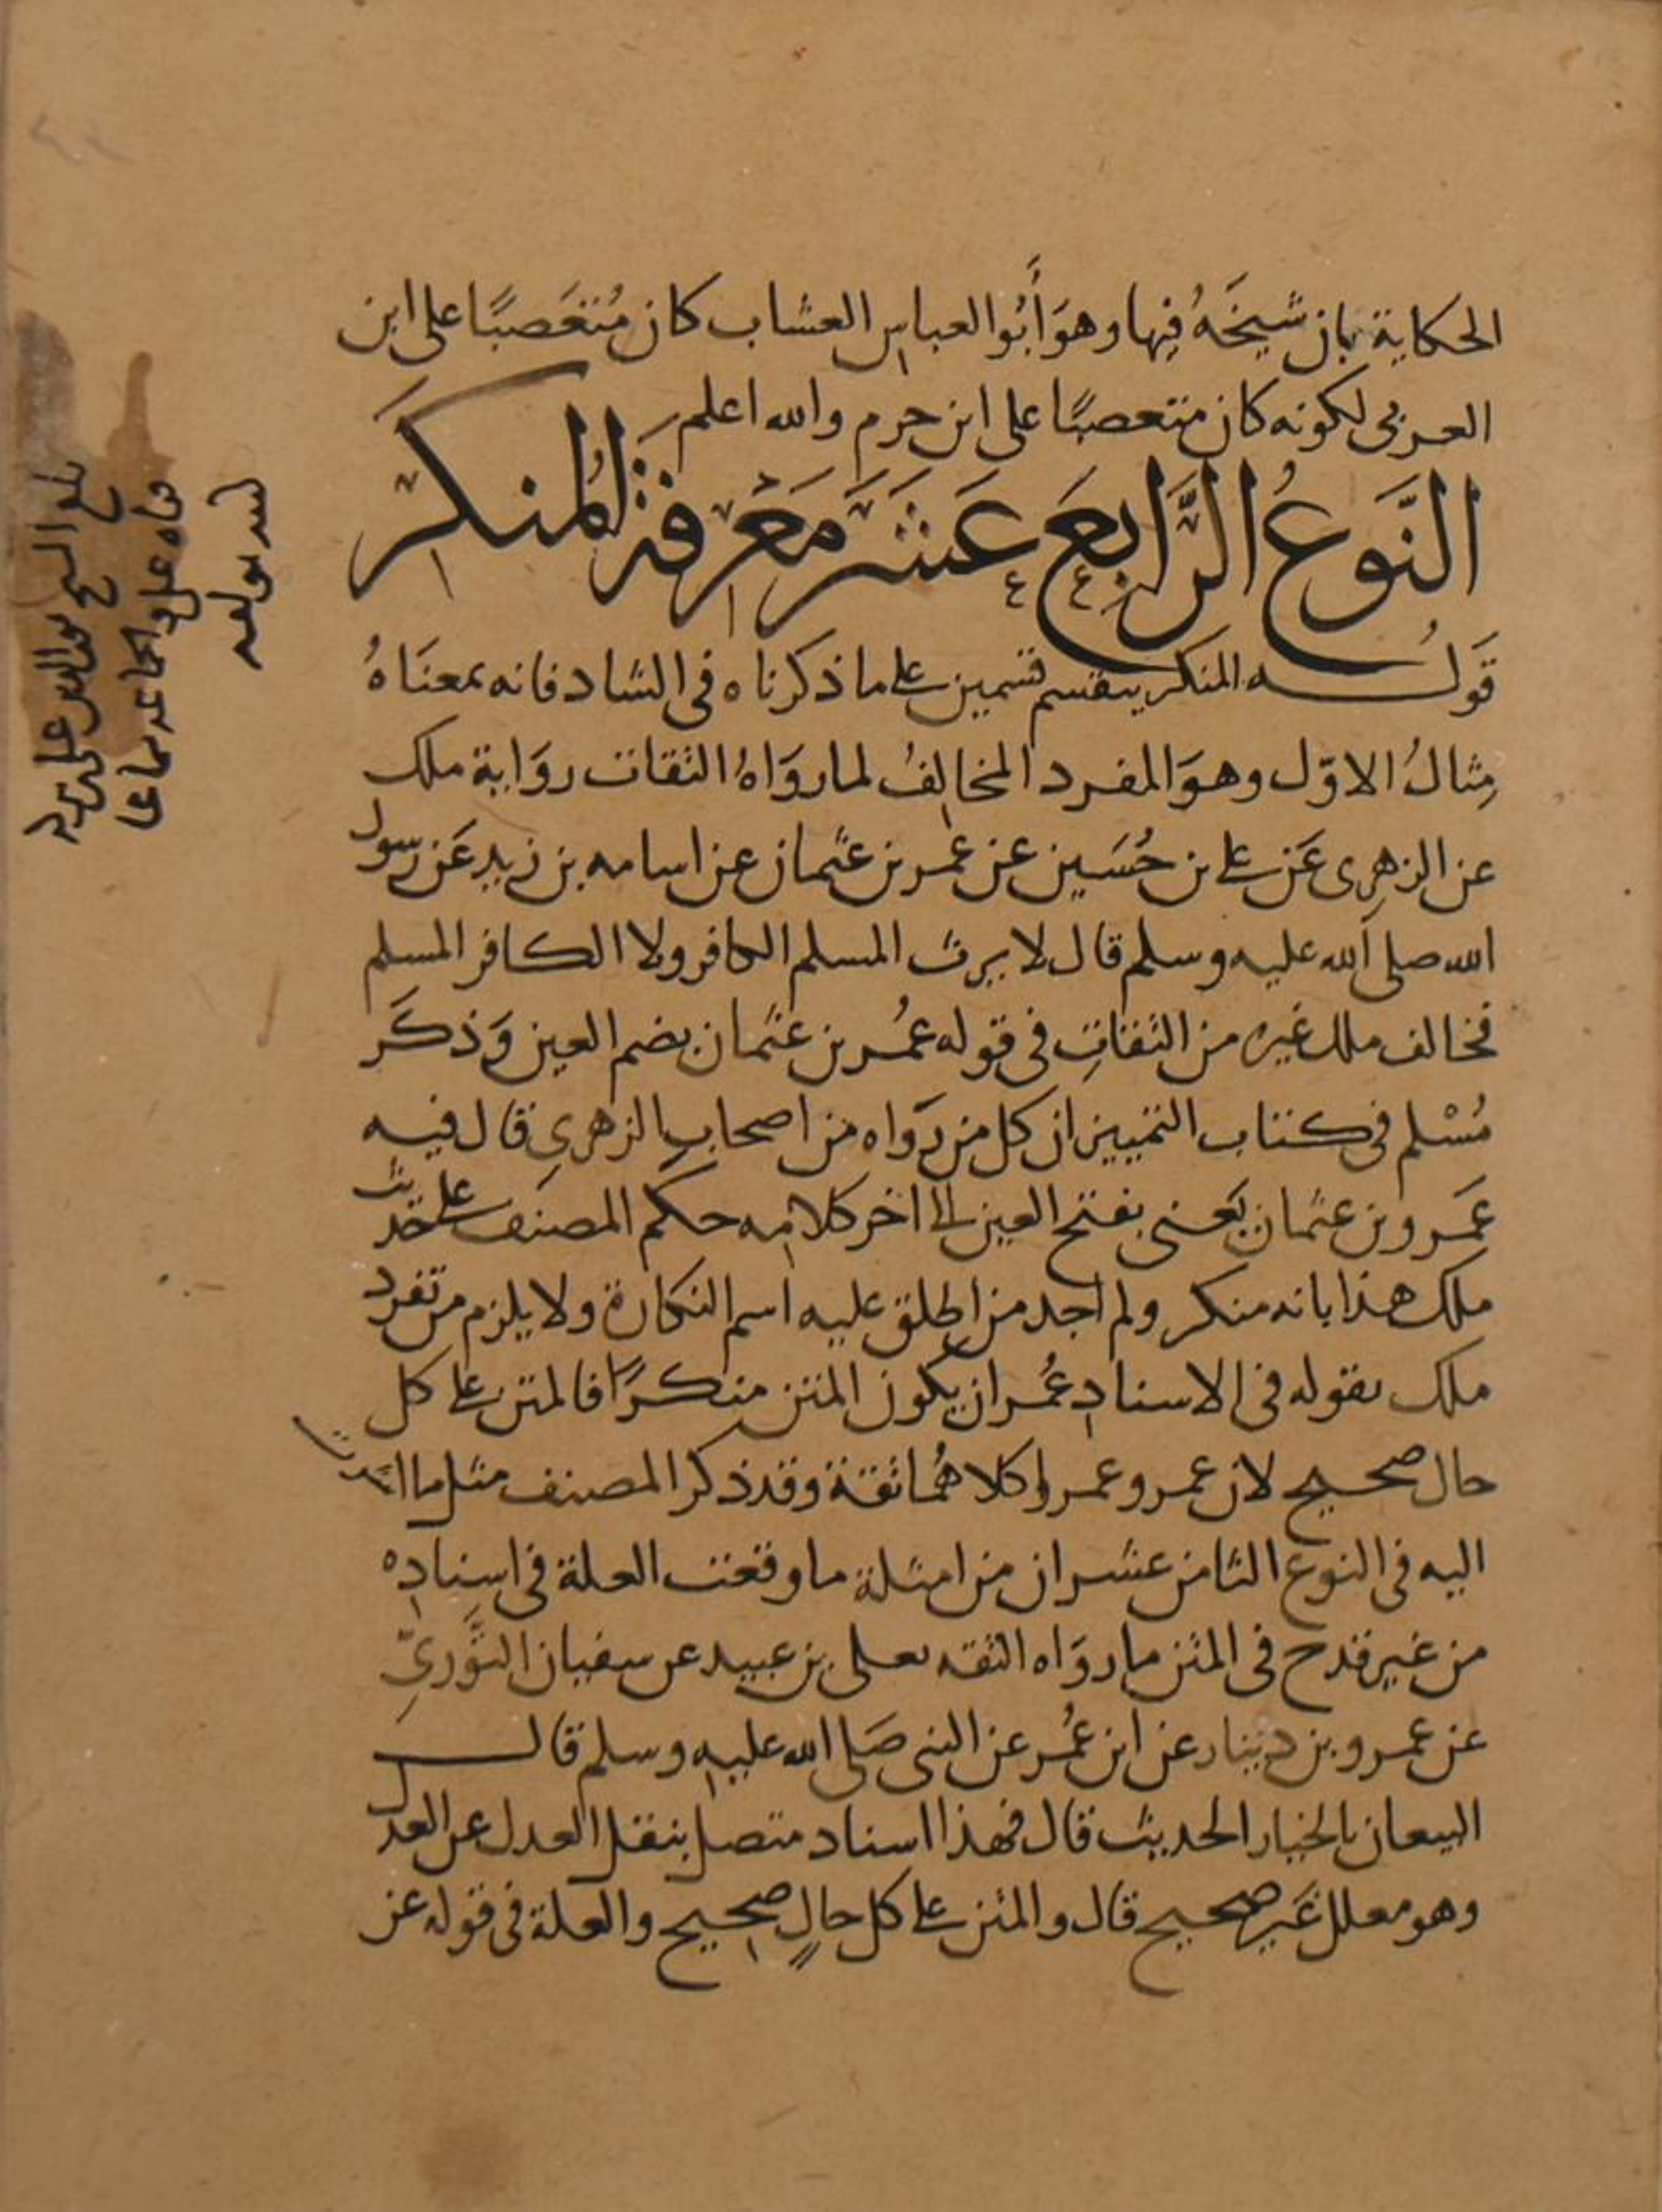 الحكاية بان شيخَهُ فيها وهوَ أَبُو العباس العشاب كان مُتَعَصبًا على ابن
العربى لكونه كان متعصبًا على ابن حزم والله اعلم
النَّوعُ الرَّابِعَ عَشَرَ مَعْرفة المُنكَر
قَولُه المنكر ينقسم قسمين على ما ذكرناه فى الشاد فانه بمعنَاهُ
مِثالُ الاوّل وهوَ المفرد المخالِفُ لما روَاهُ الثقات روَاية ملك
عن الزهرِى عَن على بن حُسَين عن عمر بن عثمان عن اسامه بن زيد عَن رسول
الله صلى الله عليه وسلم قال لا يرث المسلم الكافر ولا الكافر المسلم
فخالف ملك غيره من الثقاتِ فى قوله عمُر بن عثمان بضم العين وَذكَر
مُسْلم فى كتاب التمييز ان كل من رَواه من اصحابِ الزهرىِ قال فيه
عَمَرو بن عثمان يَعنى بفتح العين الى اخر كلامِه حكم المصنف على حَديث
ملك هذا بانه منكر ولم اجد من اطلق عليه اسم النكارة ولا يلزم من تفرد
ملك بقوله فى الاسنادِ عُمر ان يكون المتن منكرًا فالمتن على كل
حال صحيح لان عمر وعمروا كلاهُما ثقة وقد ذكر المصنف مثل ما اشرنا
اليه فى النوع الثامن عشر ان من امثلة ما وقعت العلة فى اسنادِه
من غير قدح فى المتن ما روَاه الثقه يعلى بن عبيد عن سفيان الثَّورىِّ
عن عمرو بن دينار عن ابن عُمر عن النبى صَلى الله عليه وسلم قال
البيعان بالخيار الحديث قال فهذا اسناد متصل بنقل العدل عن العدل
وهو معلل غَير صحيح قال والمتن على كل حالٍ صحيح والعلة فى قوله عن